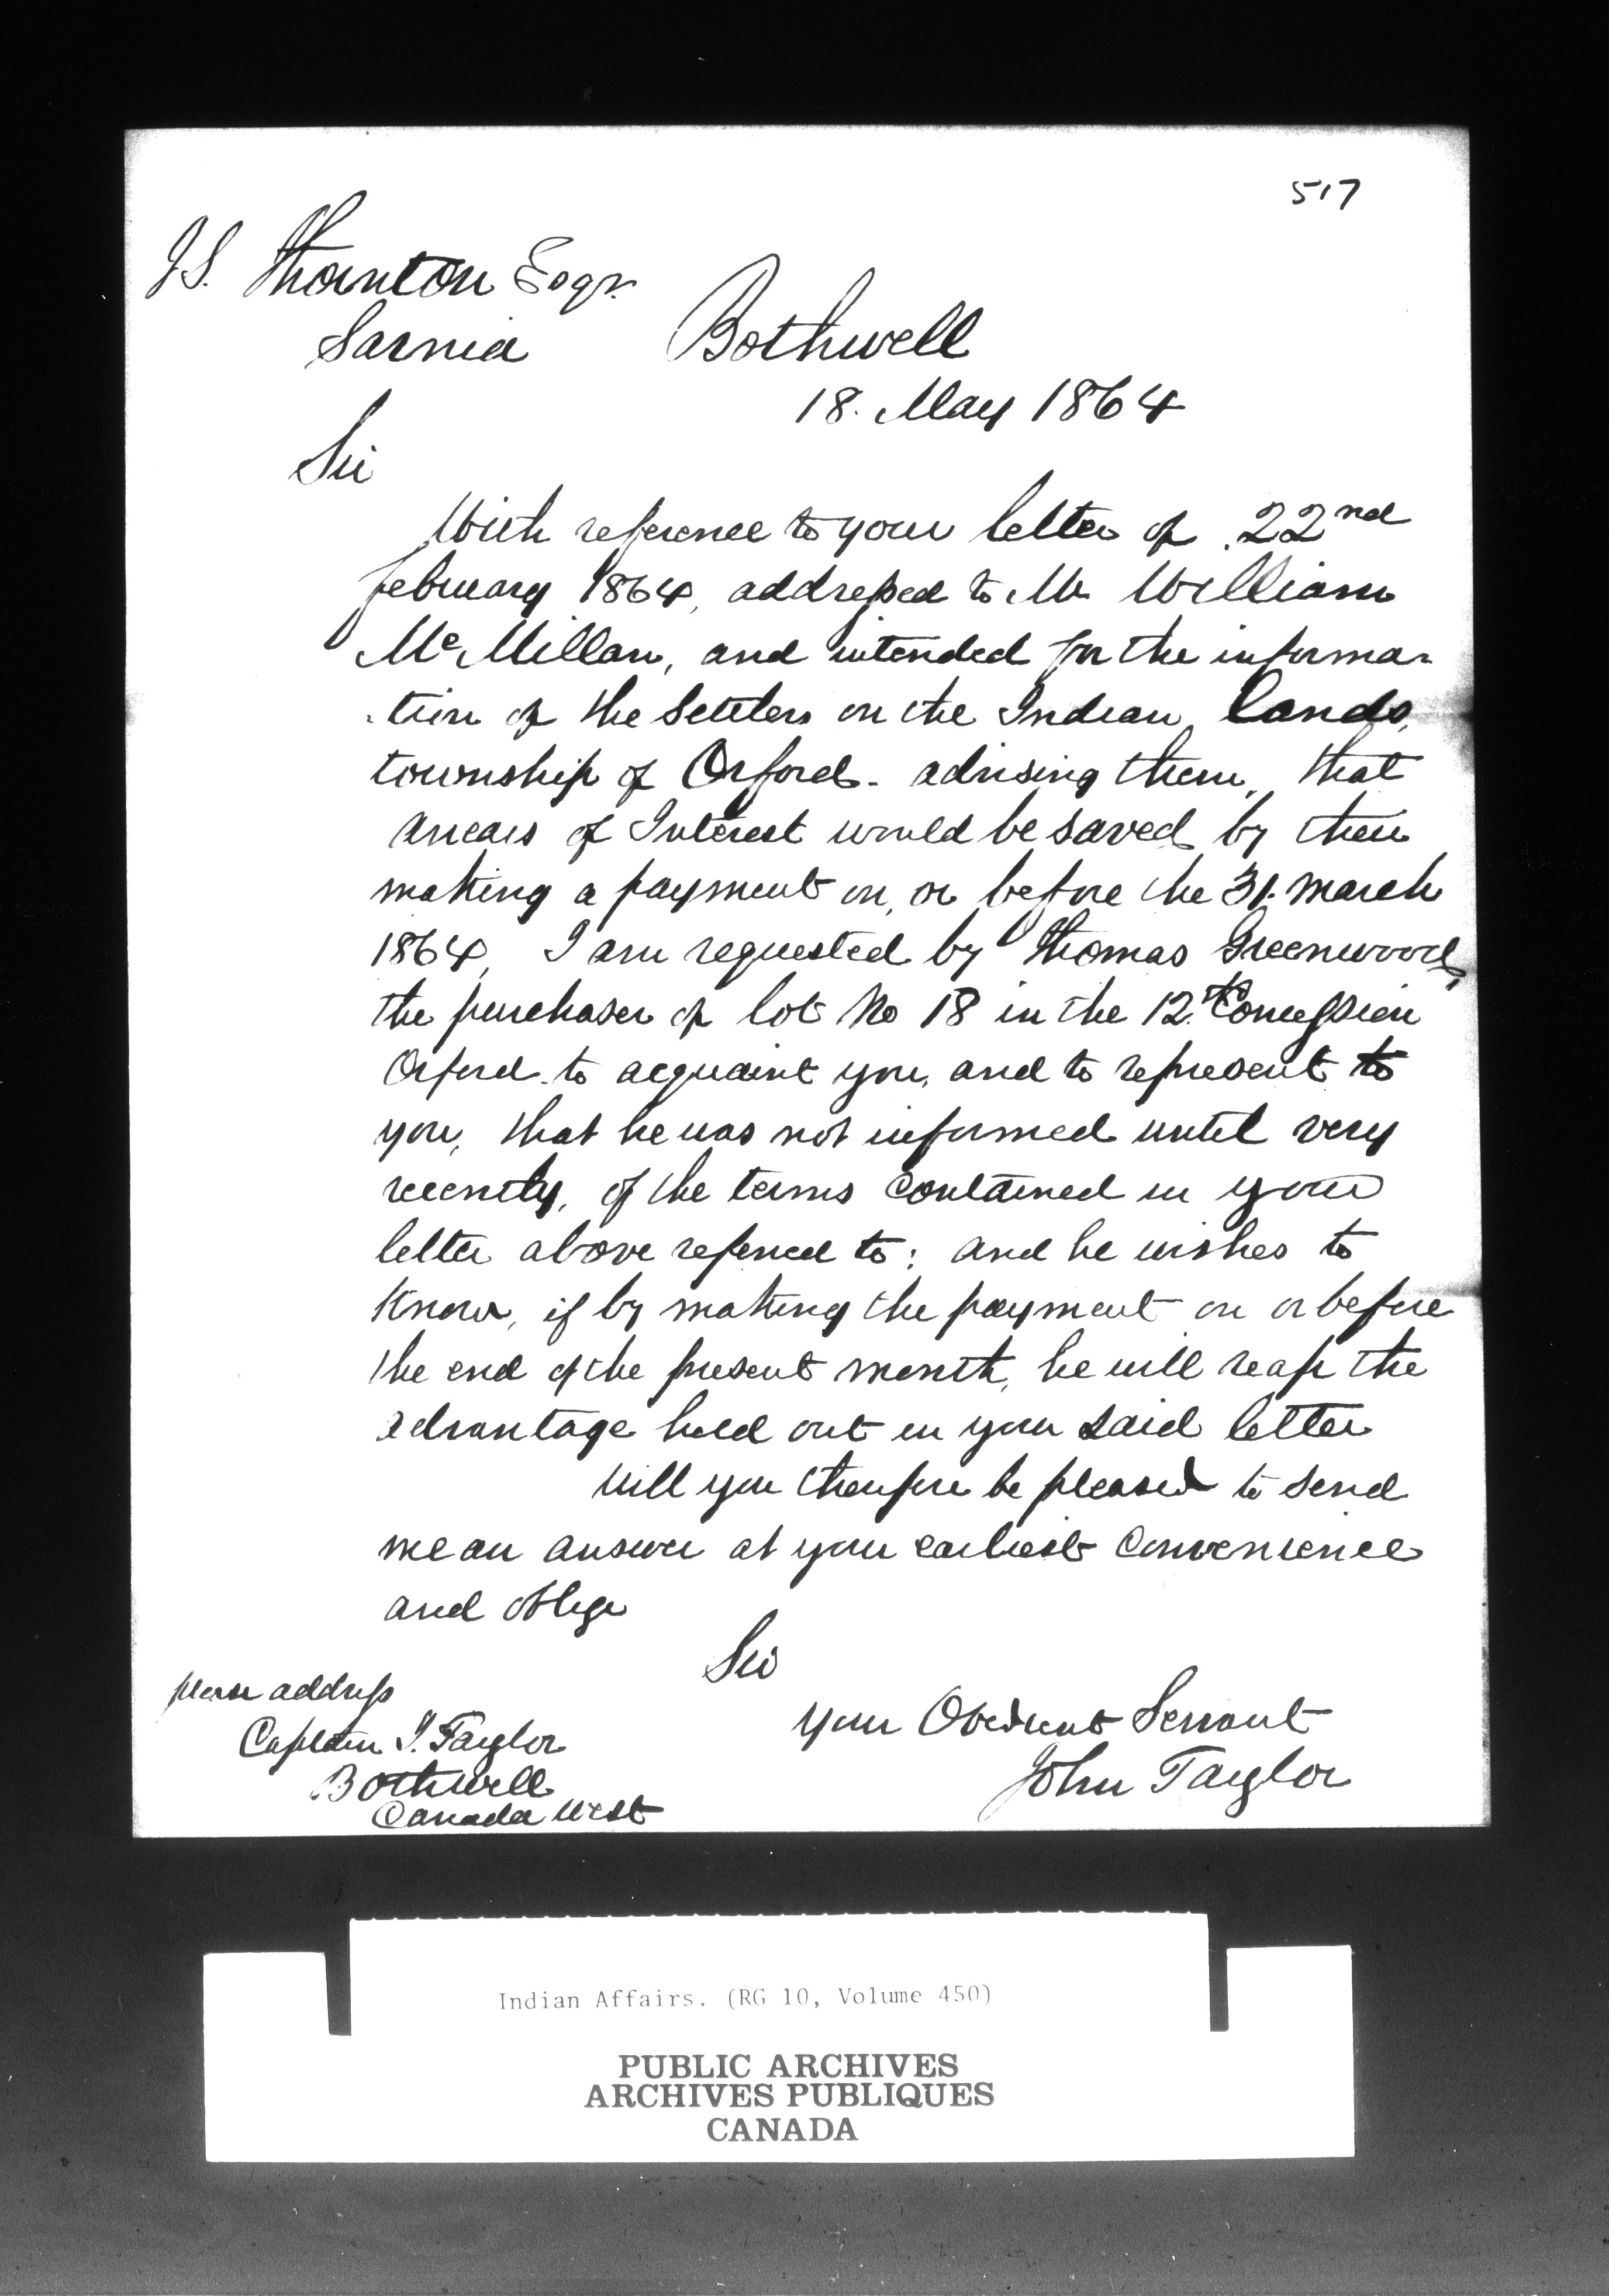 517
J.S. Thornton Esqr.
Sarnia
Bothwell
18. May 1864
Sir
With reference to your letter of 22nd
february 1864, addressed to Mr William
McMillan, and intended for the informa-
-tion of the Settlers on the Indian Lands,
township of Orford - advising them, that
arrears of Interest would be saved by their
making a payment on, or before the 31. March
1864, I am requested by Thomas Greenwood,
the purchaser of lot No 18 in the 12th Concession
Orford to acquaint you, and to represent to
you, that he was not informed until very
recently, of the terms contained in your
letter above referred to: and he wishes to
Know, if by making the payment on or before
the end of the present month, he will reap the
advantage held out in your said letter
Will you therefore be pleased to send
me an answer at your earliest Convenience
and oblige
Sir
your Obedient Servant
John Taylor
please address
Captain J. Taylor
Bothwell
Canada West
Indian Affairs. (RG 10, Volume 450)
PUBLIC ARCHIVES
ARCHIVES PUBLIQUES
CANADA